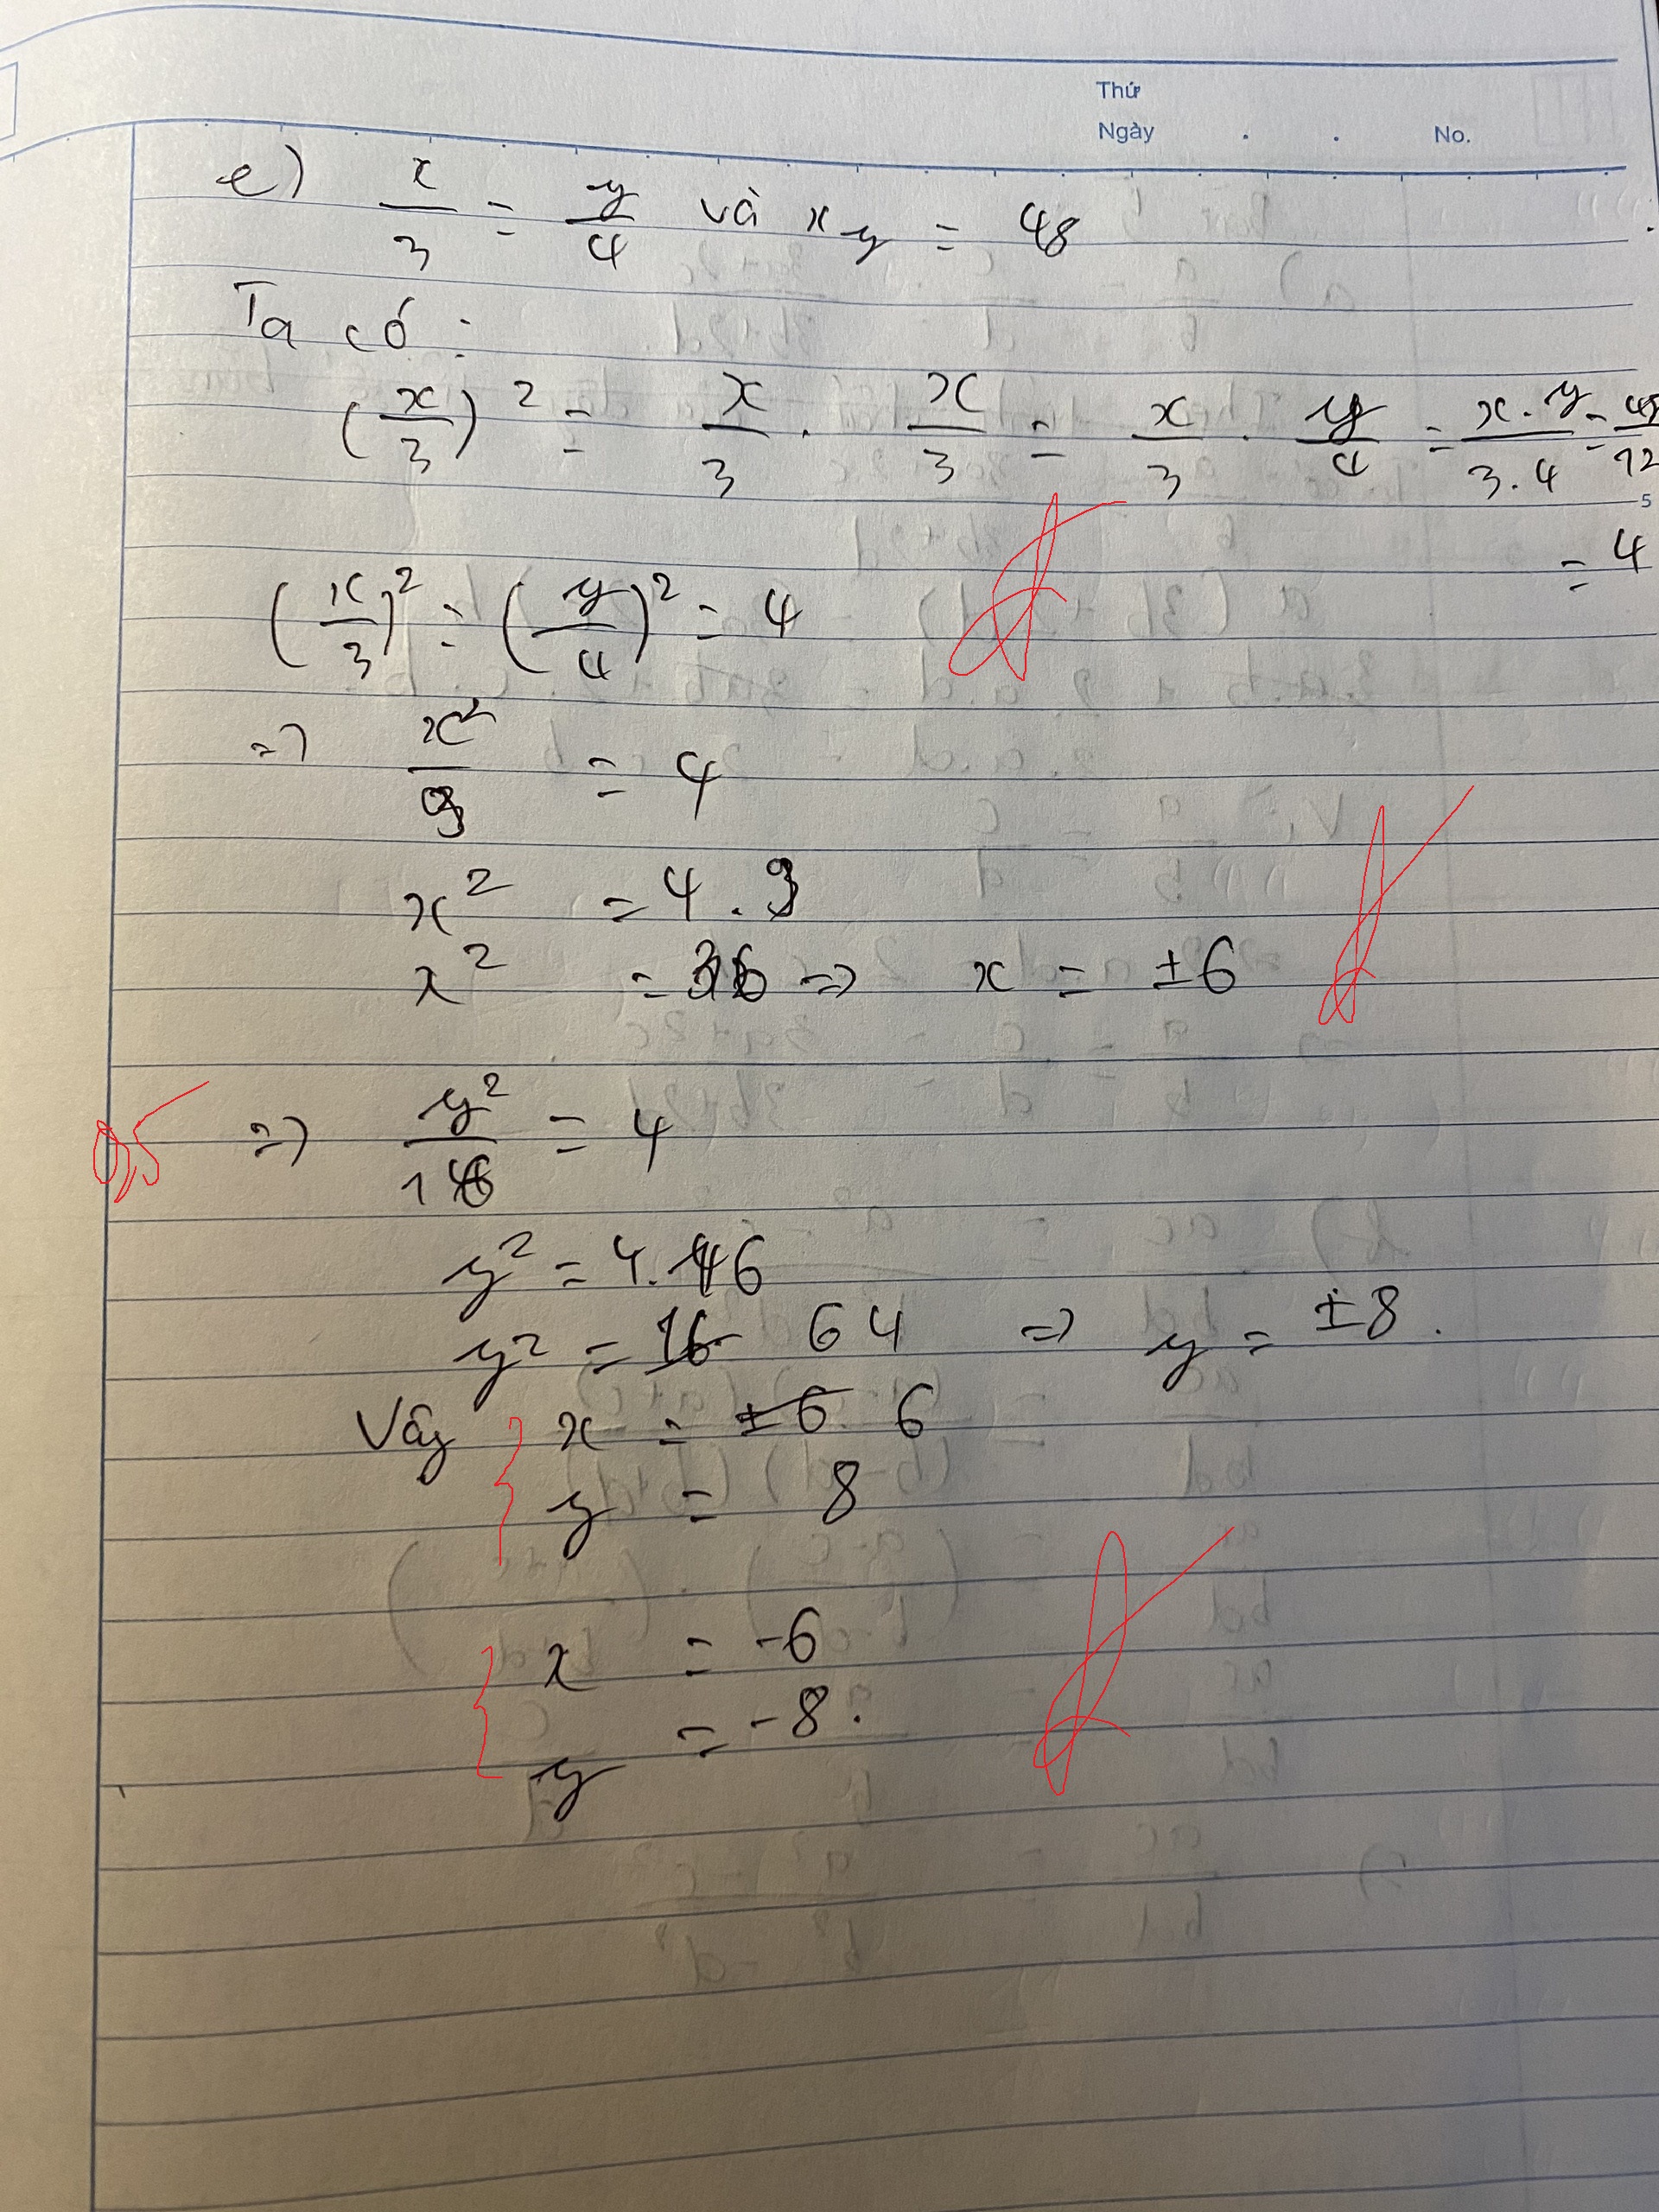 Thứ
Ngày . . No.
e) x/3 = y/4 và xy = 48
Ta có :
(x/3)² = x/3 . x/3 = x/3 . y/4 = x.y/3.4 = 48/12
5
= 4
(x/3)² = (y/4)² = 4
=> x²/9 = 4
x² = 4 . 9
x² = 36 => x = ±6
0,5 => y²/16 = 4
y² = 4.16
y² = 16 64 => y = ±8 .
Vậy x = ±6 6
y = 8
x = -6
y = -8 .